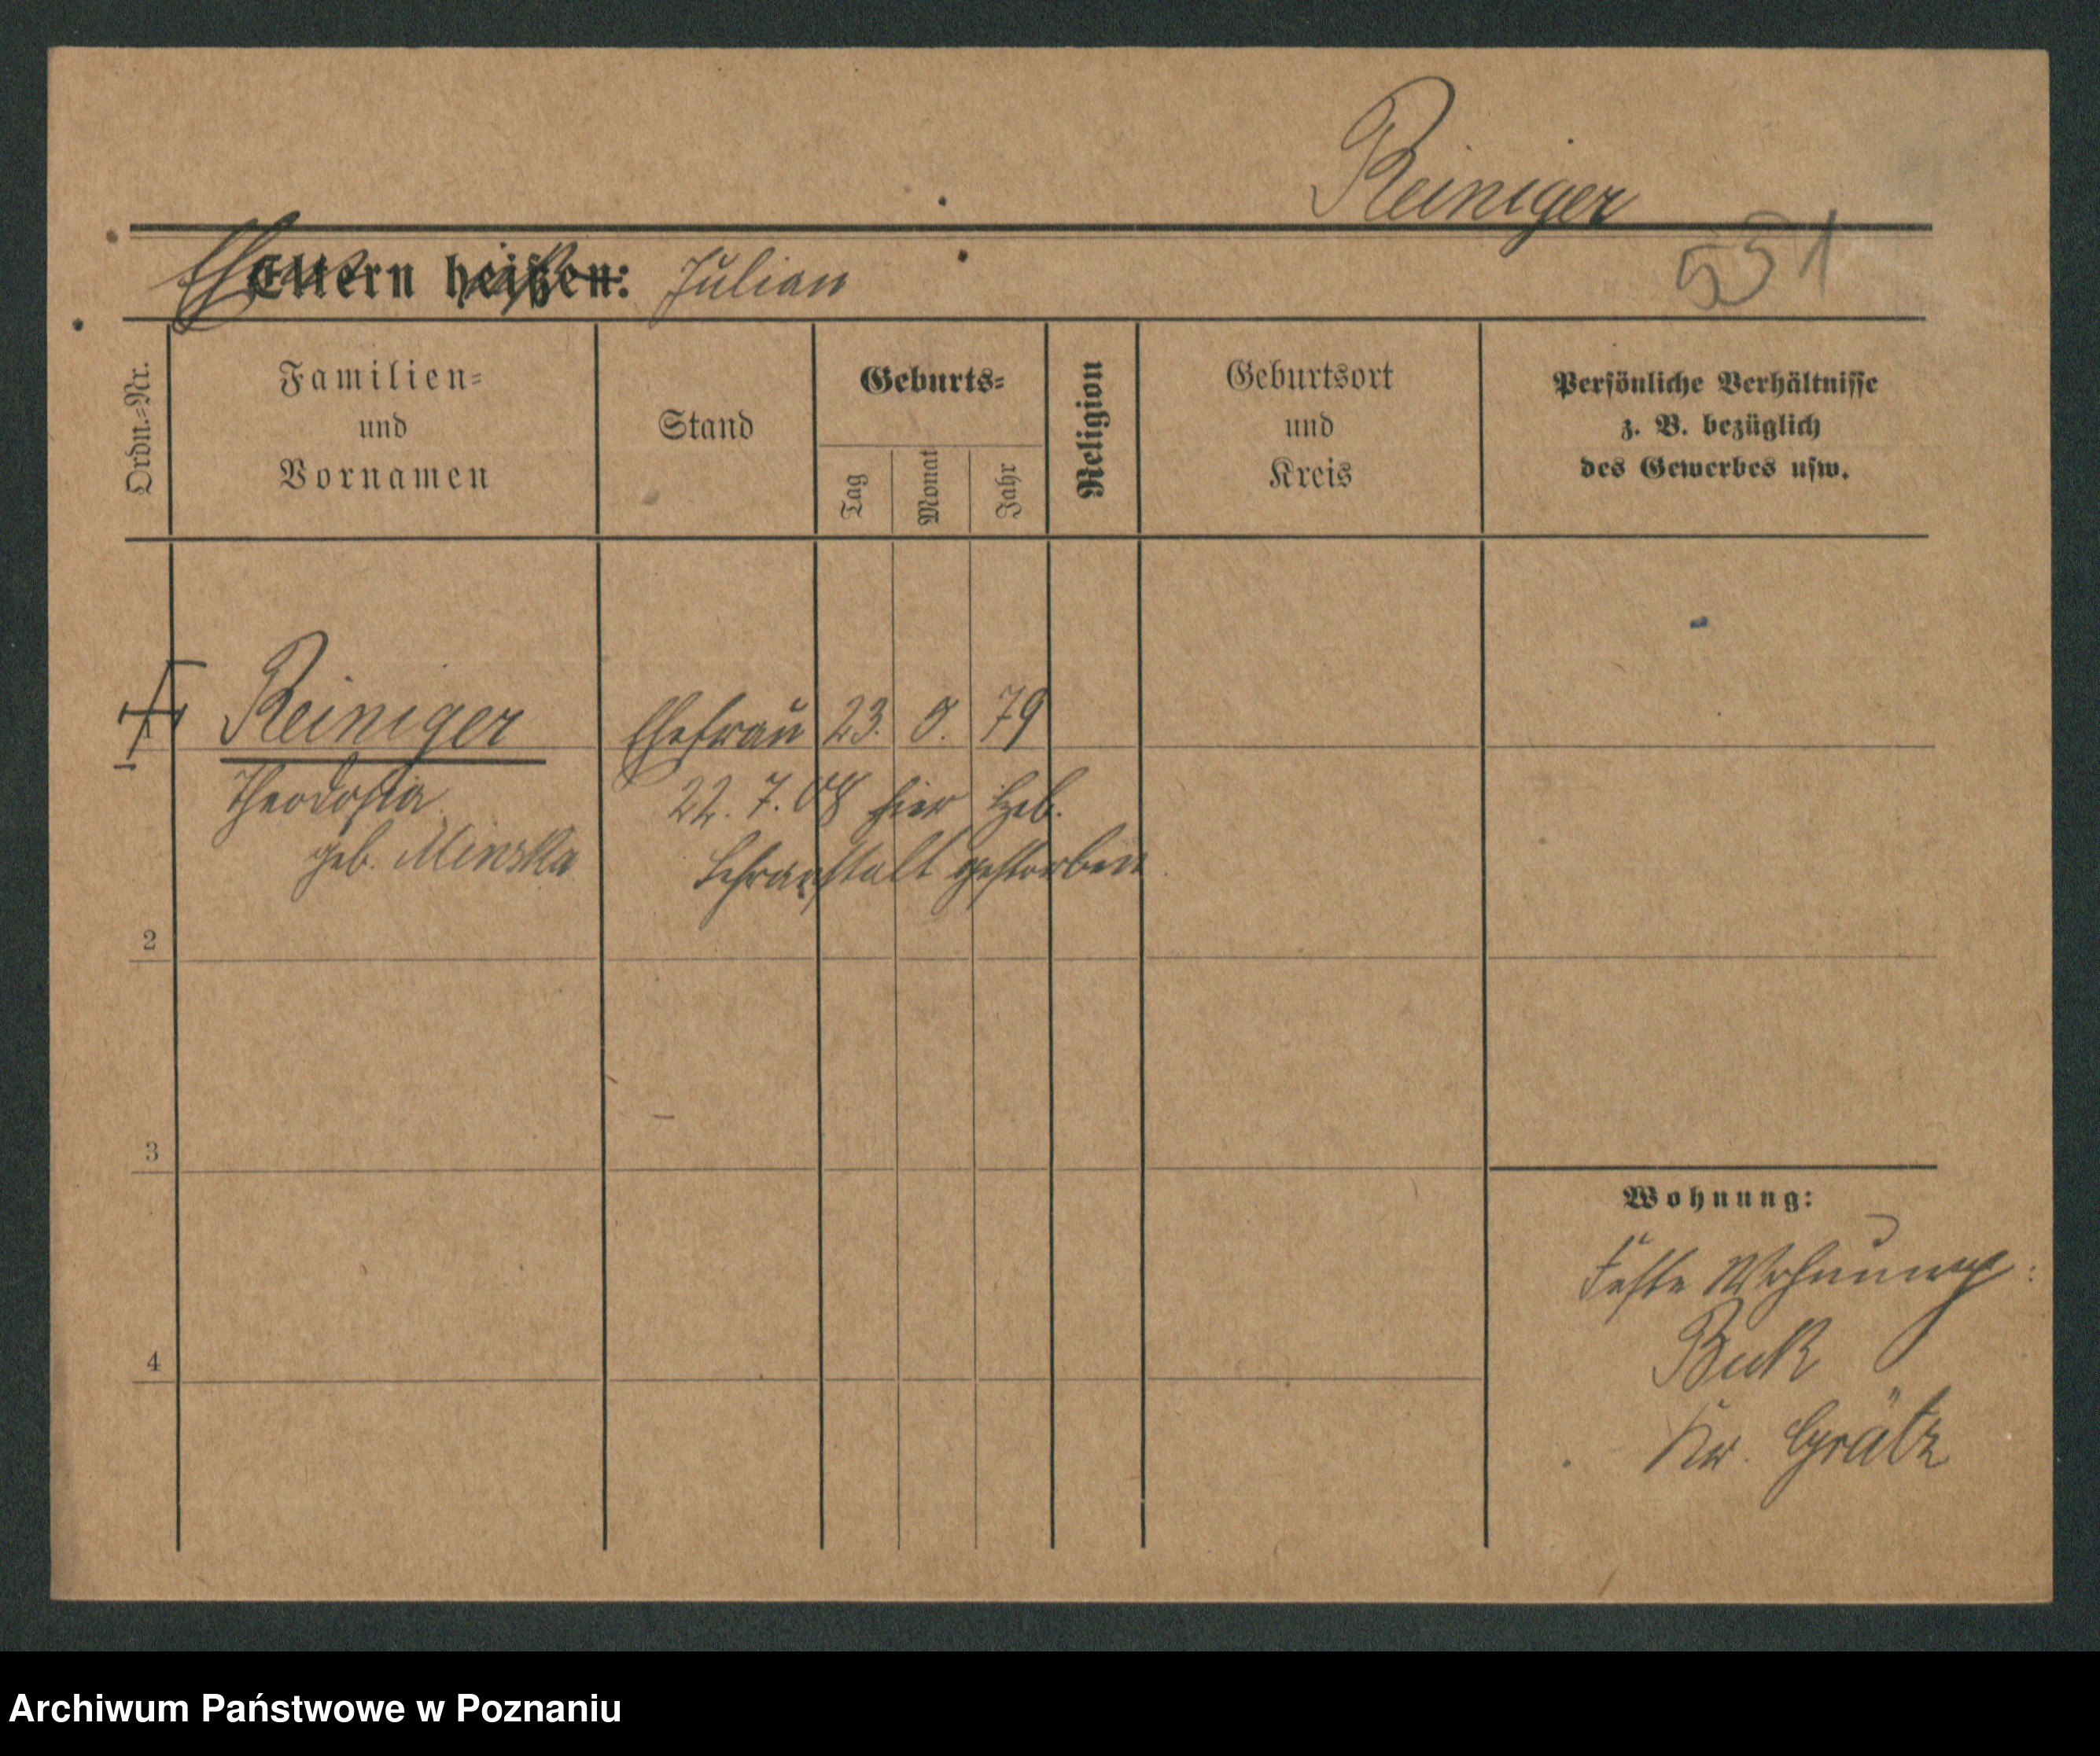 Reiniger
551
Eltern heißen: Julian
Ordn.=Nr.
Familien=
und
Vornamen
Stand
Geburts=
Tag
Monat
Jahr
Religion
Geburtsort
und
Kreis
Persönliche Verhältnisse
z. B. bezüglich
des Gewerbes usw.
Reiniger Ehefrau 23. 79
Theodosia 22. 7. 08 hier Heb.
geb. Minska Lehranstalt gestorben
2
3
4
Wohnung:
Feste Wohnung:
Buk
Kr. Grätz
Archiwum Państwowe w Poznaniu